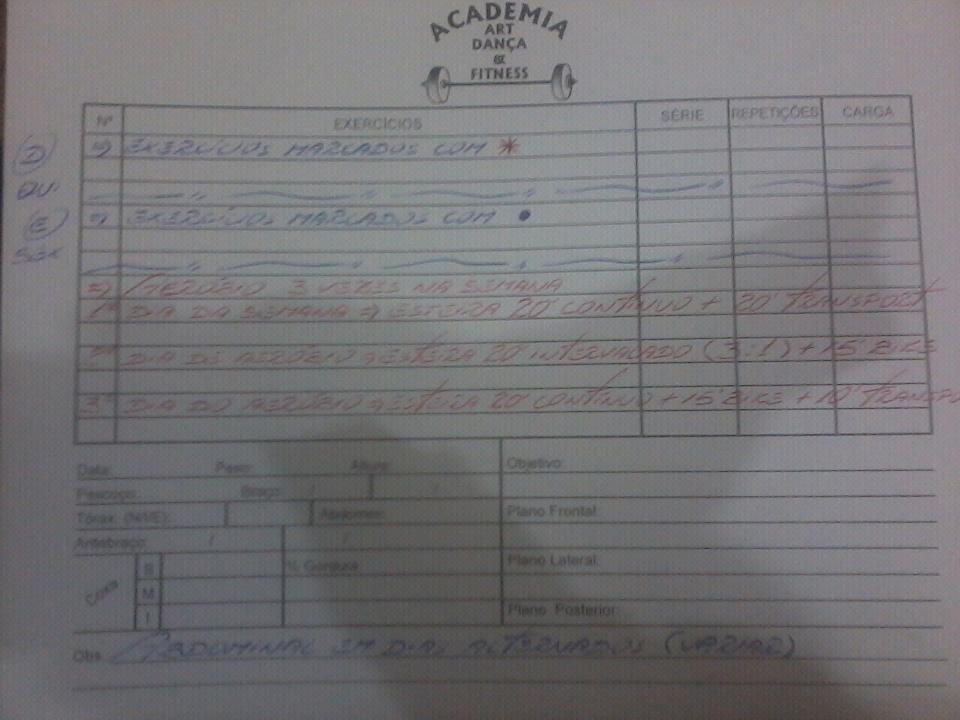 ACADEMIA
ART
DANÇA
&
FITNESS
Nº EXERCÍCIOS SÉRIE REPETIÇÕES CARGA
(D) EXERCÍCIOS MARCADOS COM *
OU
(E) EXERCÍCIOS MARCADOS COM •
SEX
AERÓBIO 3 VEZES NA SEMANA
1º DIA DA SEMANA ESTEIRA 20' CONTÍNUO + 20' TRANSPORT
2º DIA DE AERÓBIO ESTEIRA 20' INTERVALADO (3:1) + 15' BIKE
3º DIA DO AERÓBIO ESTEIRA 20' CONTÍNUO + 15' BIKE + 10' TRANSPO
Data: Peso: Altura: Objetivo:
Pescoço: Braço: / /
Tórax: (N/VE): Abdomen: Plano Frontal:
Antebraço: / /
Coxa S % Gordura Plano Lateral:
M
I Plano Posterior:
Obs. ABDOMINAL EM DIAS ALTERNADOS (VARIAR)